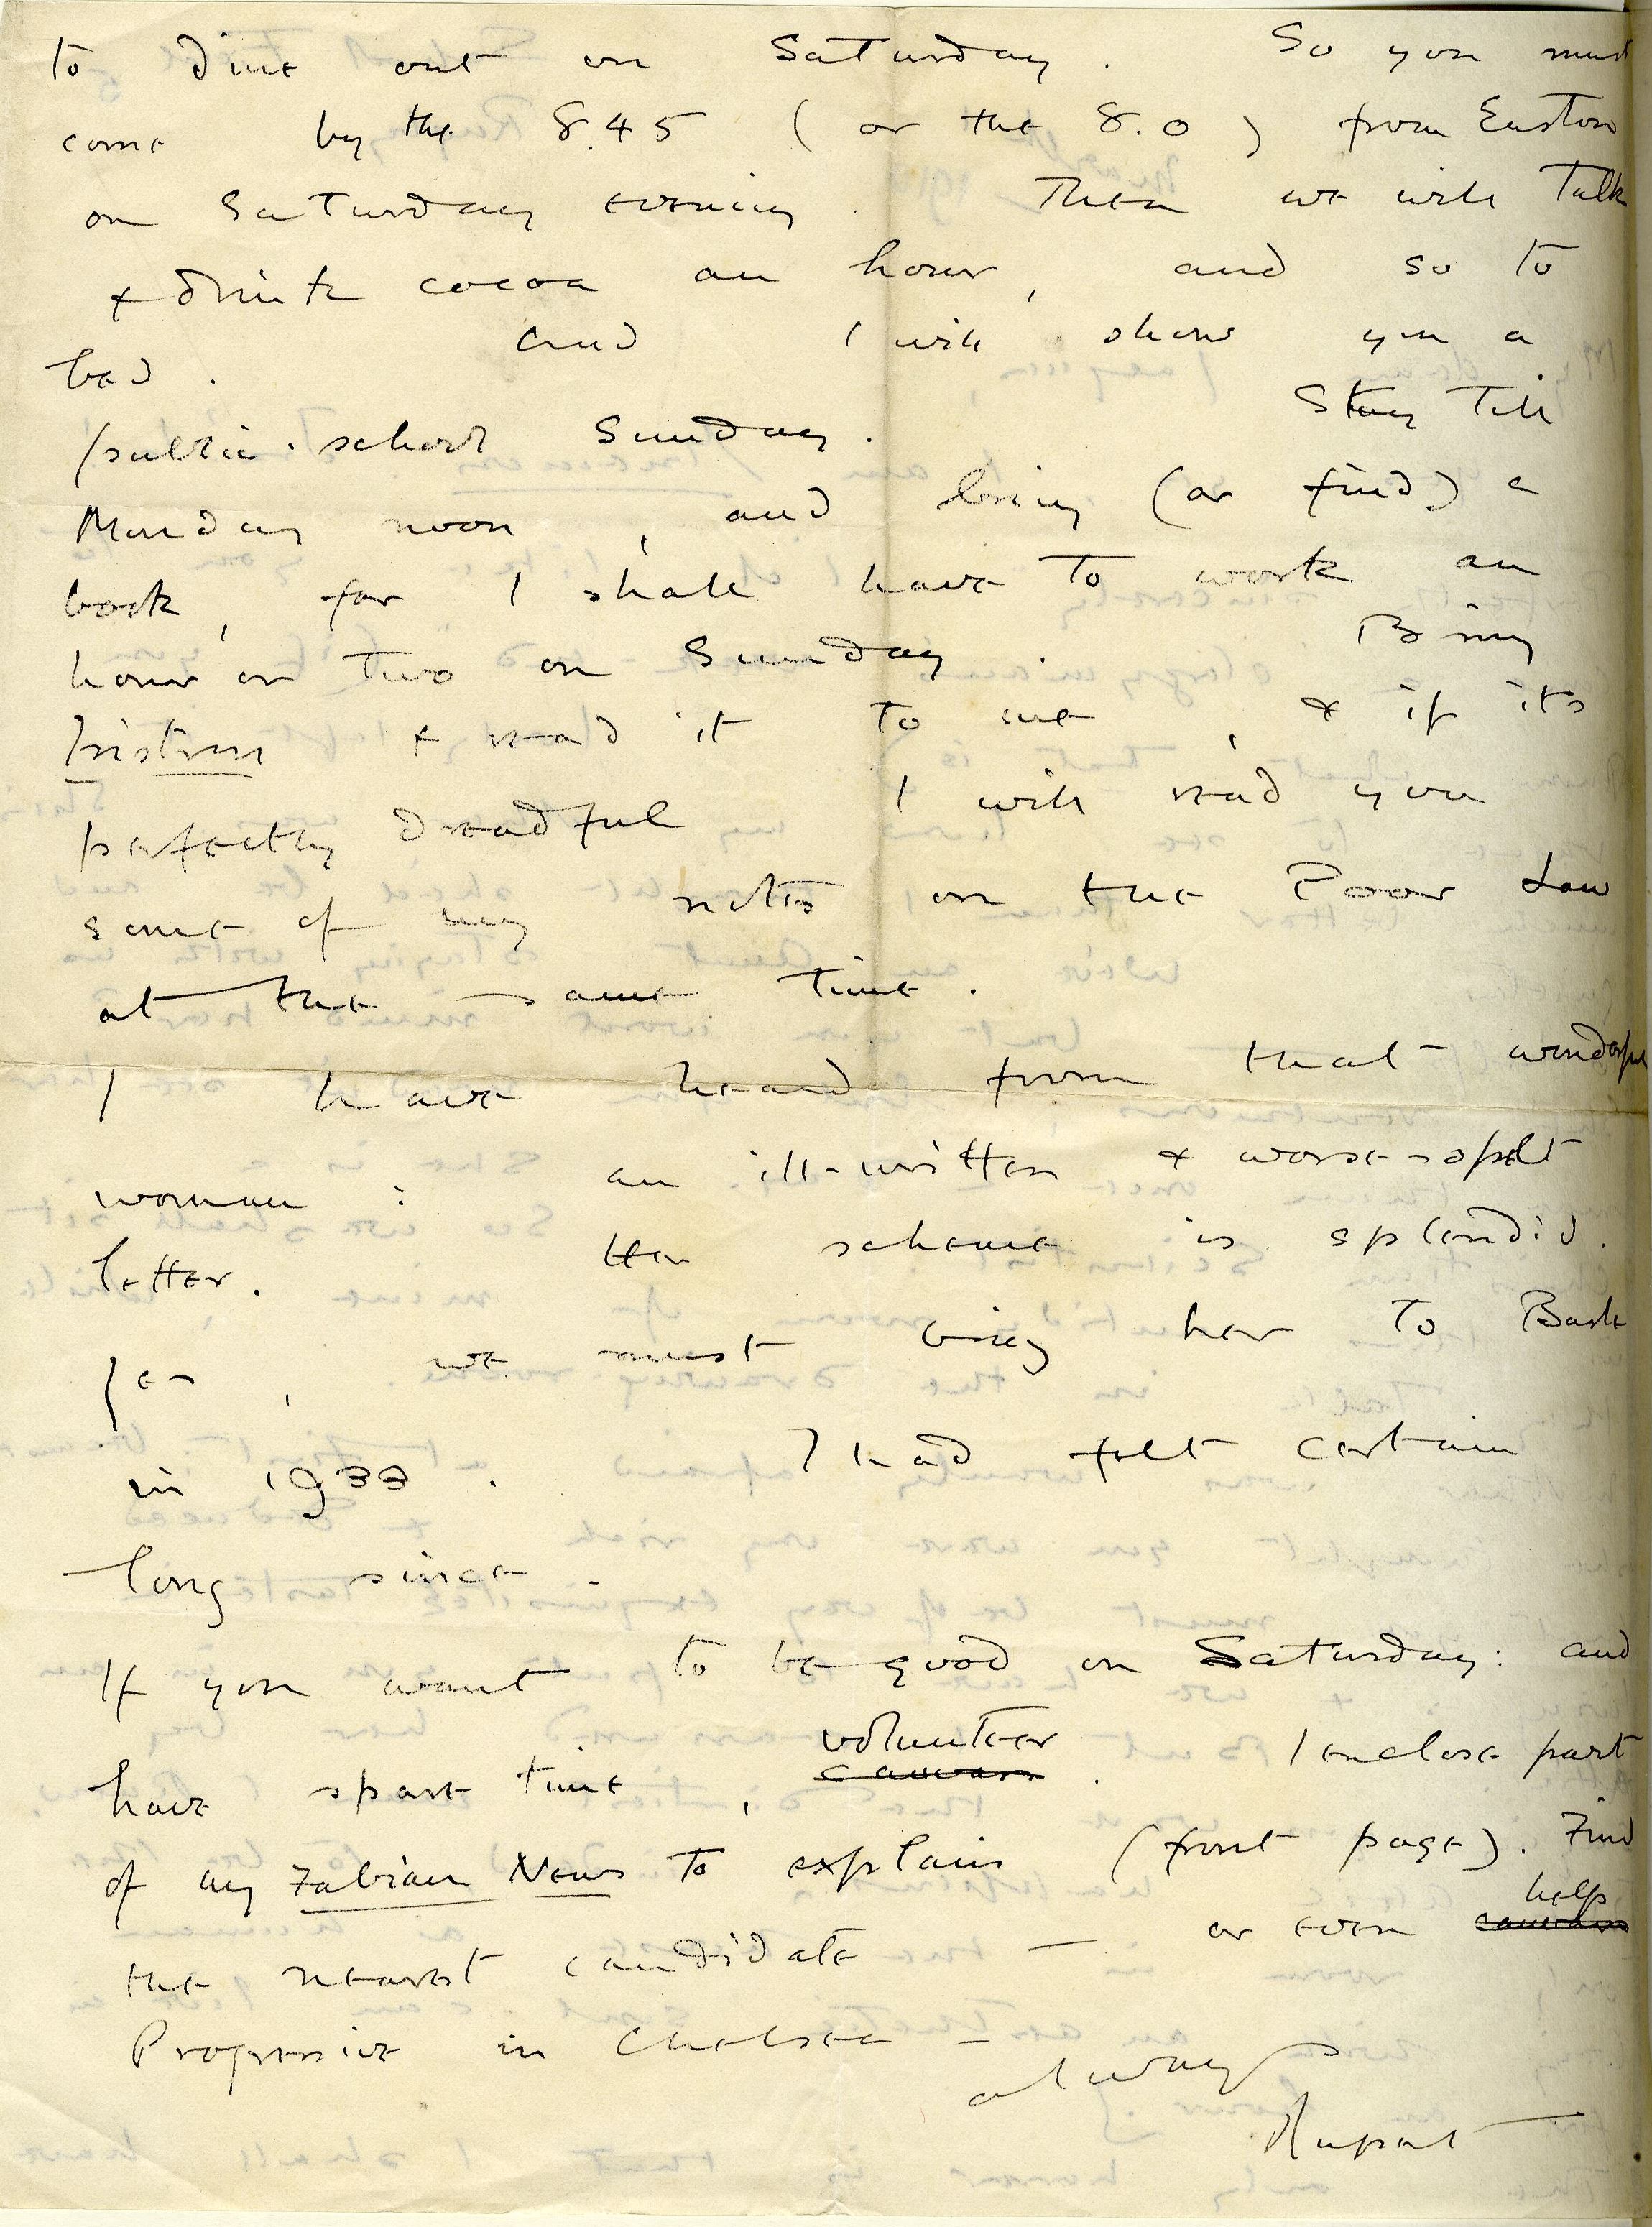 to dine out on Saturday. So you must
come by the 8.45 (or the 8.0) from Euston
on Saturday evening. Then we will talk
& drink cocoa an hour, and so to
bed. And I will show you a
public-school Sunday. Stay till
Monday noon, and bring (or find) a
book, for I shall have to work an
hour or two on Sunday. Bring
Tristram & read it to me, & if it's
perfectly dreadful I will read you
some of my notes on the Poor Law
at the same time.
I have heard from that wonderful
woman: an ill-written & worse-spelt
letter. Her scheme is splendid.
Yes, we must bring her to Basle
in 1933. I had felt certain
long since.
If you want to be good on Saturday: and
have spare time, volunteer
canvass. I enclose part
of my Fabian News to explain (front page). Find
the nearest candidate — or even help
canvass
Progressive in Chelsea —
always
Rupert